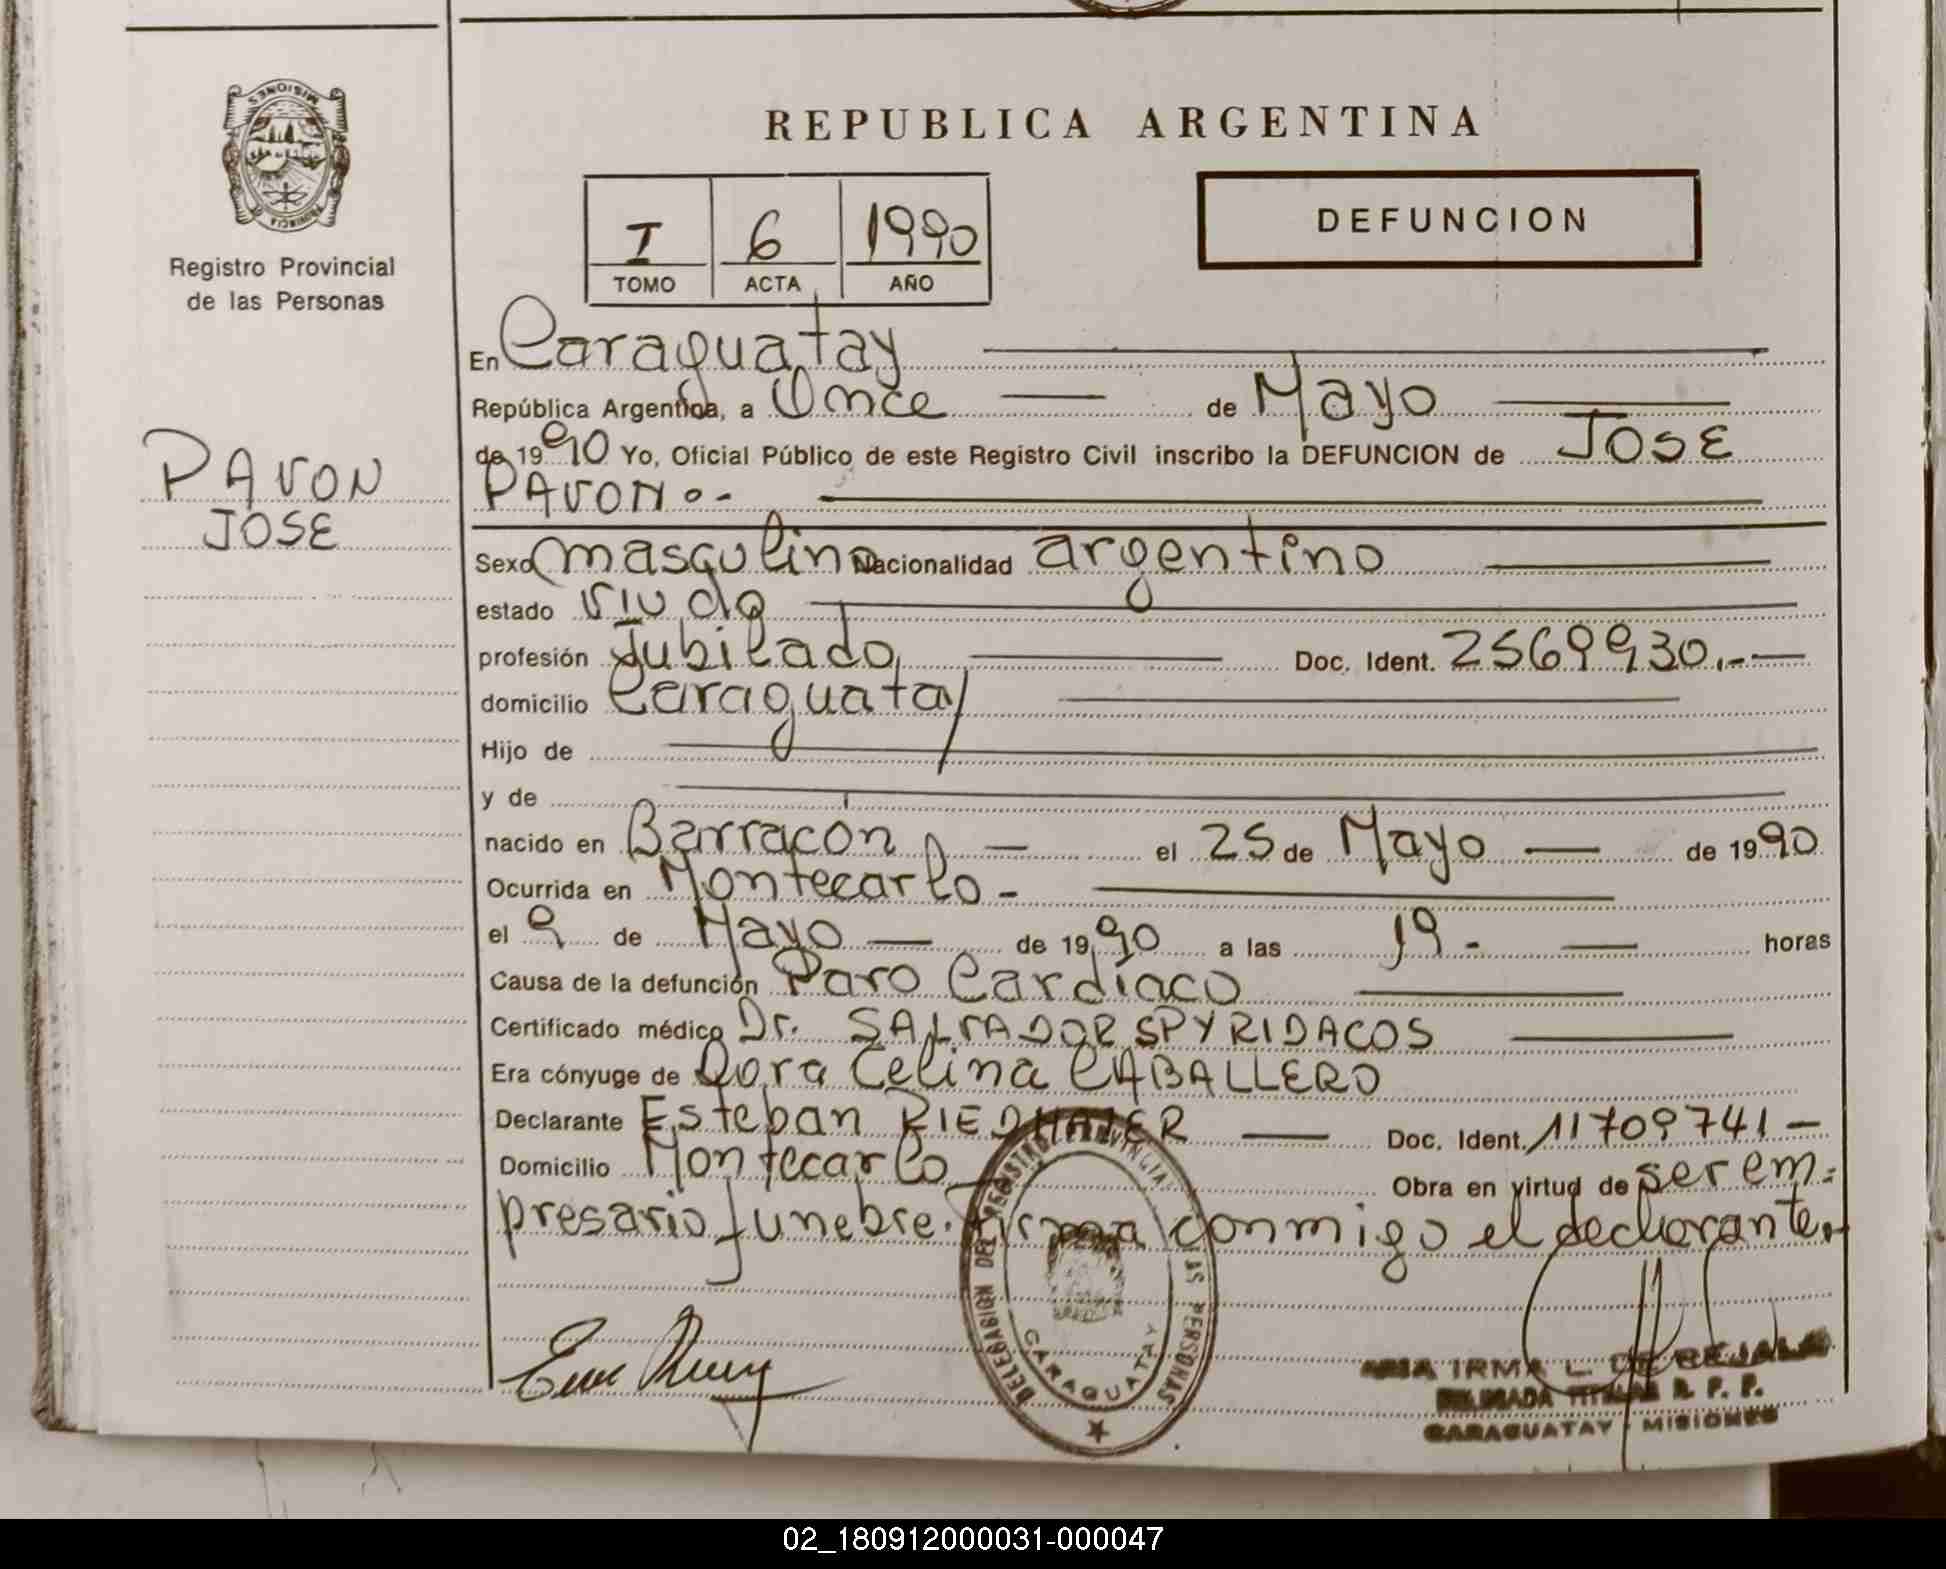 MISIONES
PROVINCIA
Registro Provincial
de las Personas
PAVON
JOSE
REPUBLICA ARGENTINA
I 6 1990
TOMO ACTA AÑO
DEFUNCION
En Caraguatay
República Argentina, a Once de Mayo
de 1990 Yo, Oficial Público de este Registro Civil inscribo la DEFUNCION de JOSE
PAVON.-
Sexo masculino Nacionalidad argentino
estado viudo
profesión Jubilado Doc. Ident. 2569930.-
domicilio Caraguatay
Hijo de
y de
nacido en Barracon el 25 de Mayo de 1990
Ocurrida en Montecarlo-
el 9 de Mayo de 1990 a las 19- horas
Causa de la defunción Paro Cardíaco
Certificado médico Dr. SALVADOR SPYRIDACOS
Era cónyuge de Dora Celina CABALLERO
Declarante Esteban RIEDMAIER Doc. Ident. 11709741-
Domicilio Montecarlo Obra en virtud de ser em=
presario funebre. Firma conmigo el declarante.
DELEGACION DEL REGISTRO PROVINCIAL DE LAS PERSONAS
CARAGUATAY
IRMA L. DE BEJALA
DELEGADA TITULAR R. P. P.
CARAGUATAY - MISIONES
02_180912000031-000047